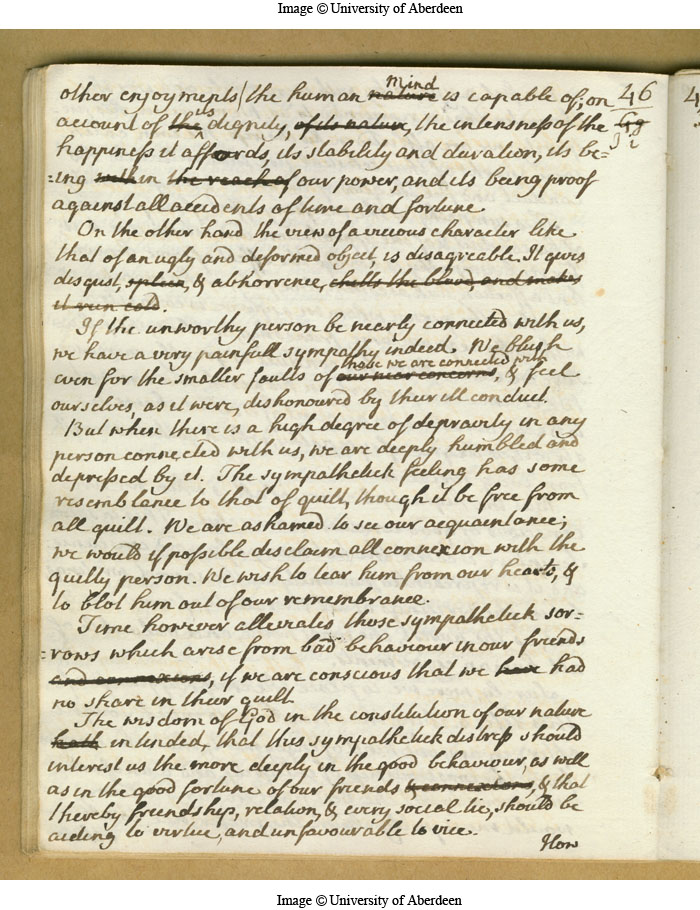 Image © University of Aberdeen
other enjoyments the human nature Mind is capable of; on 46
account of the its dignity, of its nature, the intenseness of the
happiness it affords, its stability and duration, its be=
=ing within the reach of our power, and its being proof
against all accidents of time and fortune.
On the other hand the view of a vicious character like
that of an ugly and deformed object, is disagreable. It gives
disgust, spleen, & abhorrence, chills the blood, and makes
it run cold.
If the unworthy person be nearly connected with us,
we have a very painfull sympathy indeed. We blush
even for the smaller faults of our near concerns those we are connected with, & feel
ourselves, as it were, dishonoured by their ill conduct.
But when there is a high degree of depravity in any
person connected with us, we are deeply humbled and
depressed by it. The sympathetick feeling has some
resemblance to that of guilt, though it be free from
all guilt. We are ashamed to see our acquaintance;
we would if possible disclaim all connexion with the
guilty person. We wish to tear him from our hearts, &
to blot him out of our remembrance.
Time however alleviates those sympathetick sor=
=rows which arise from bad behaviour in our friends
and connexions, if we are conscious that we have had
no share in their guilt.
The wisdom of God in the constitution of our nature
hath intended, that this sympathetick distress should
interest us the more deeply in the good behaviour, as well
as in the good fortune of our friends & connexions, & that
thereby friendship, relation, & every social tie, should be
aiding to virtue, and unfavourable to vice.
How
Image © University of Aberdeen